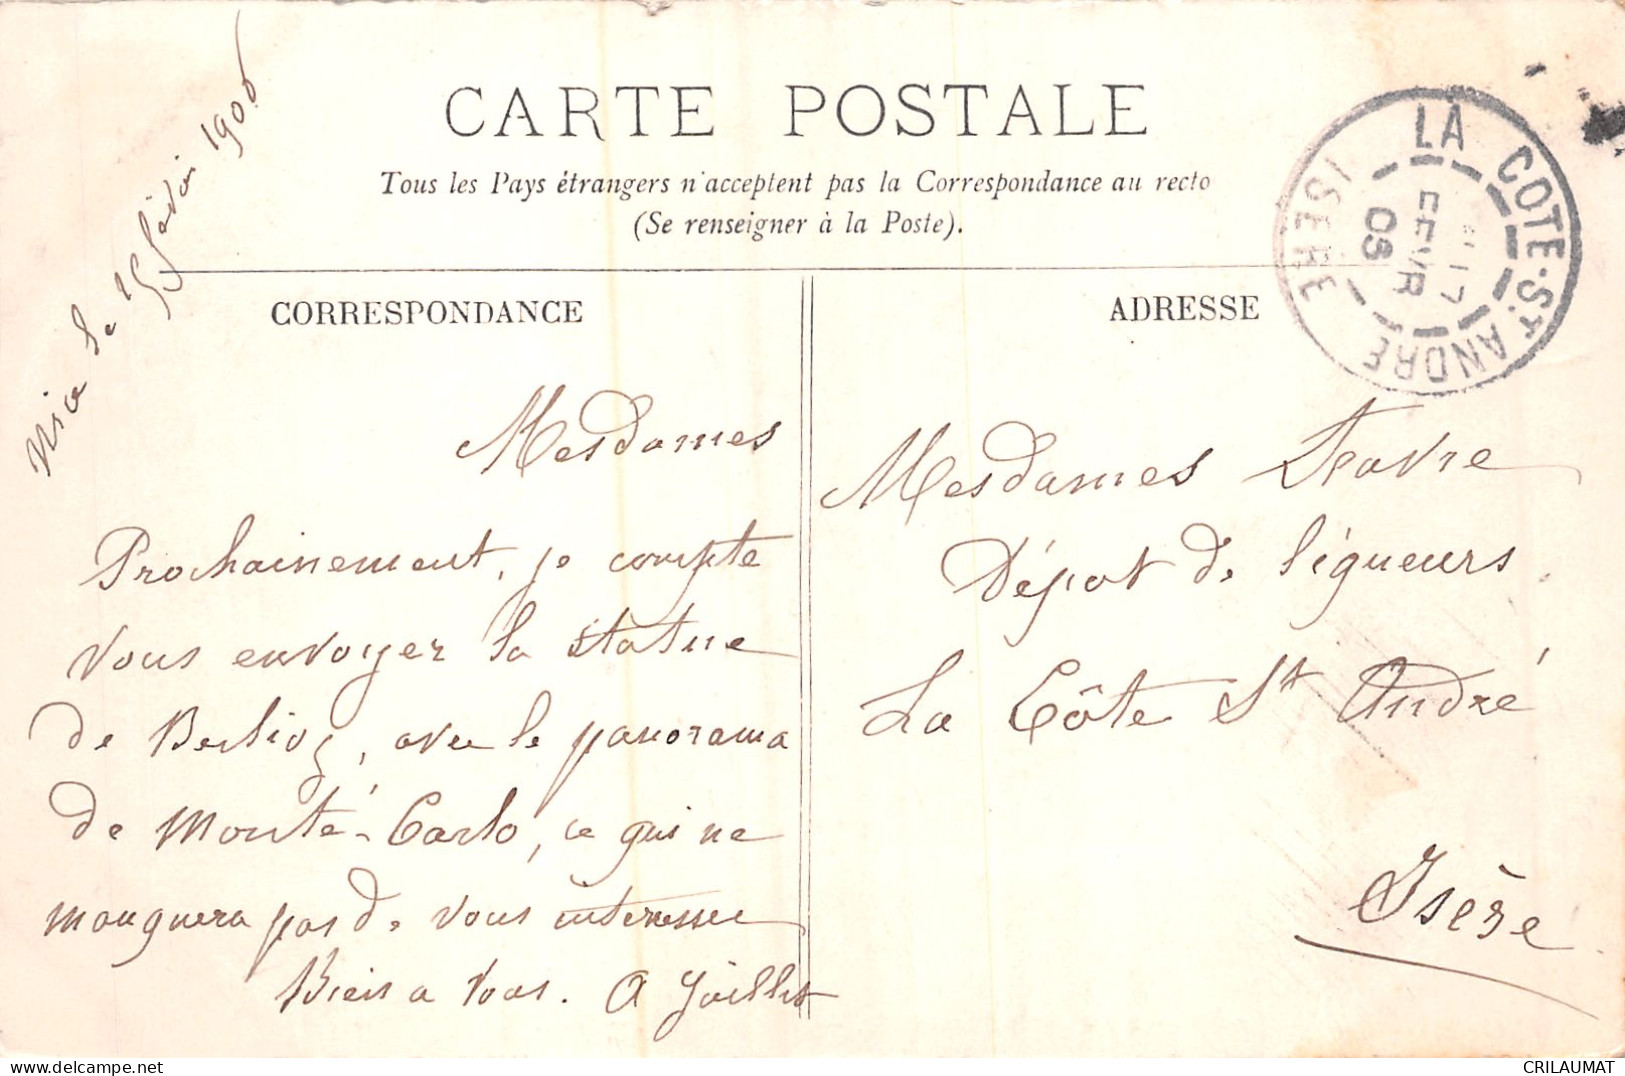 CARTE POSTALE
Tous les Pays étrangers n'acceptent pas la Correspondance au recto
(Se renseigner à la Poste).
Nice le 1906
CORRESPONDANCE
ADRESSE
LA COTE-ST ANDRÉ
ISÈRE
17
FEVR
Mesdames
Prochainement, je compte
vous envoyer la statue
de Berlioz, avec le panorama
de Monté-Carlo, ce qui ne
manquera pas de vous intéresser
Bien a vous. A Juillet
Mesdames Favre
Dépot de liqueurs
La Côte St André
Isère
CRILAUMAT